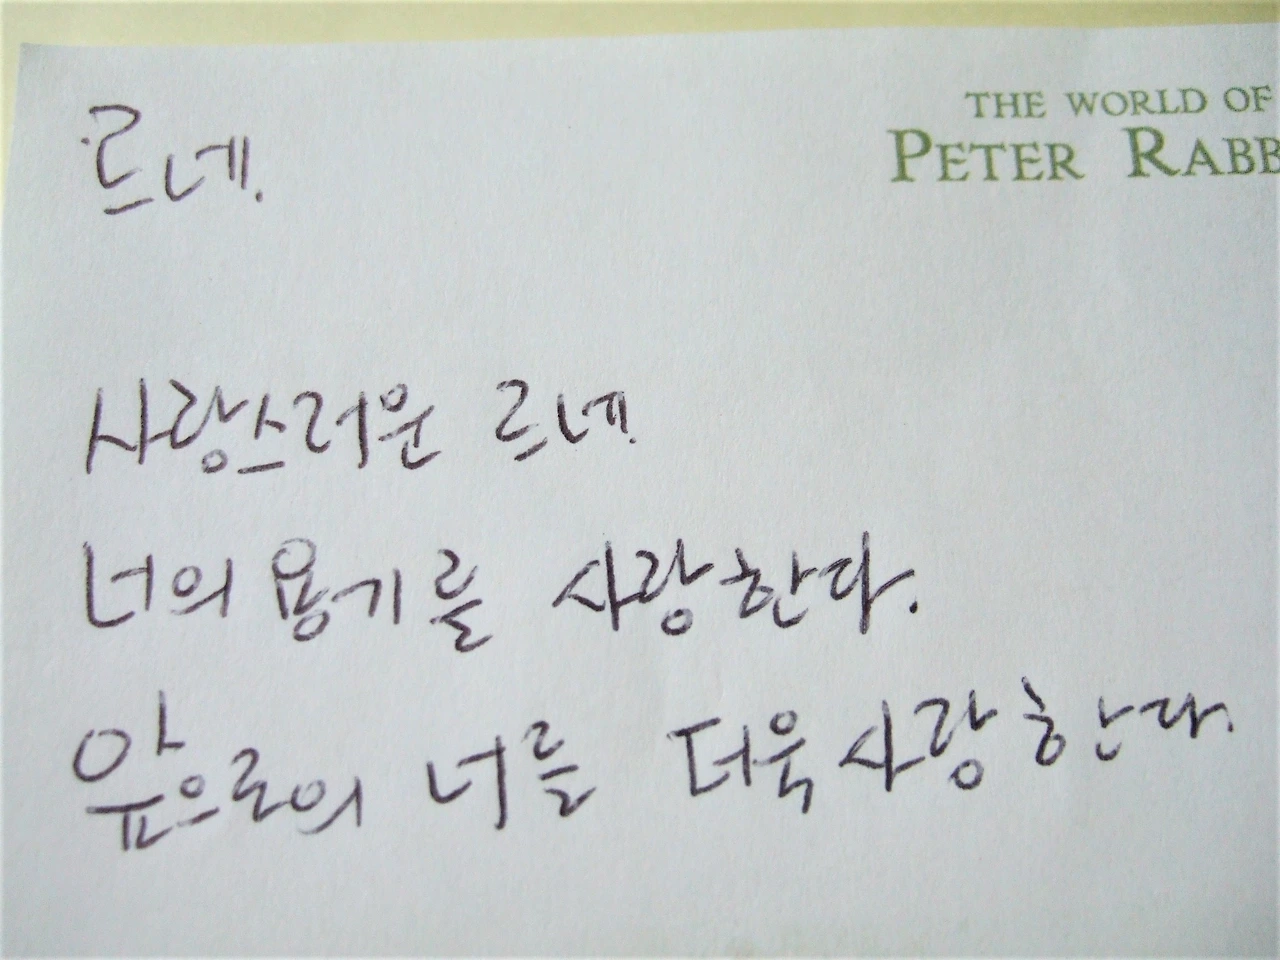 르네.
THE WORLD OF
PETER RABB
사랑스러운 르네.
너의 용기를 사랑한다.
앞으로의 너를 더욱 사랑한다.